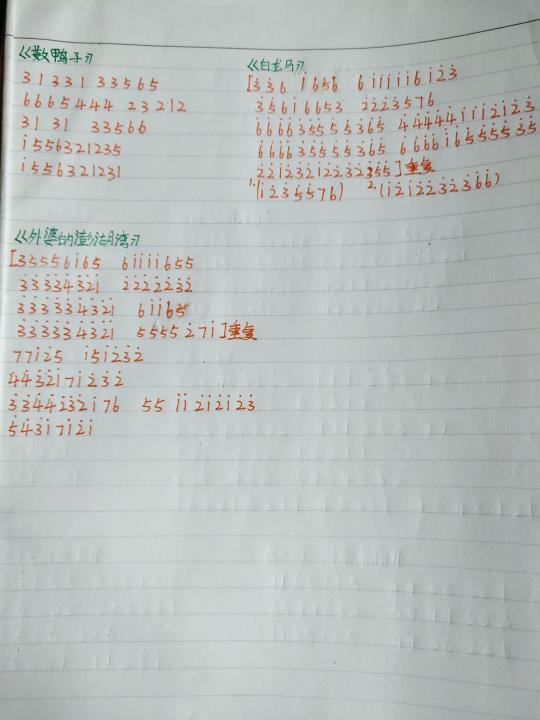 《数鸭子》
3 1 3 3 1 3 3 5 6 5
6 6 6 5 4 4 4 2 3 2 1 2
3 1 3 1 3 3 5 6 6
i̇ 5 5 6 3 2 1 2 3 5
i̇ 5 5 6 3 2 1 2 3 1
《白龙马》
[3̇ 3̇ 6 i̇ 6 5 6 6 i̇ i̇ i̇ i̇ i̇ 6 i̇ 2̇ 3̇
3̇ 5̇ 6 i̇ 6 6 5 3 2̇ 2̇ 2̇ 3̇ 5 7 6
6̇ 6̇ 6̇ 6̇ 3̇ 5̇ 5̇ 5̇ 5̇ 3̇ 6̇ 5̇ 4̇ 4̇ 4̇ 4̇ 4̇ i̇ i̇ i̇ 2̇ i̇ 2̇ 3̇
6̇ 6̇ 6̇ 6̇ 3̇ 5̇ 5̇ 5̇ 5̇ 3̇ 6̇ 5̇ 6̇ 6̇ 6̇ 6̇ i̇ 6̇ 5̇ 5̇ 5̇ 5̇ 3̇ 5̇
2̇ 2̇ i̇ 2̇ 3̇ 2̇ i̇ 2̇ 2̇ 3̇ 2̇ 3̇ 5̇ 5̇ ] 重复
1.(i̇ 2̇ 3̇ 5̇ 5̇ 7 6) 2.(i̇ 2̇ i̇ 2̇ 2̇ 3̇ 2̇ 3̇ 6̇ 6̇)
《外婆的澎湖湾》
[3 5 5 5 6 i̇ 6 5 6 i̇ i̇ i̇ i̇ 6 5 5
3̇ 3̇ 3̇ 3̇ 4̇ 3̇ 2̇ i̇ 2̇ 2̇ 2̇ 2̇ 2̇ 3̇ 2̇
3̇ 3̇ 3̇ 3̇ 3̇ 4̇ 3̇ 2̇ i̇ 6 i̇ i̇ 6 5
3̇ 3̇ 3̇ 3̇ 3̇ 4̇ 3̇ 2̇ i̇ 5 5 5 5 2̇ 7 i̇ ] 重复
7 7 i̇ 2̇ 5 i̇ 5 i̇ 2̇ 3̇ 2̇
4̇ 4̇ 3̇ 2̇ i̇ 7 i̇ 2̇ 3̇ 2̇
3̇ 3̇ 4̇ 4̇ 2̇ 3̇ 2̇ i̇ 7 6 5 5 i̇ i̇ 2̇ i̇ 2̇ i̇ 2̇ 3̇
5̇ 4̇ 3̇ i̇ 7 i̇ 2̇ i̇